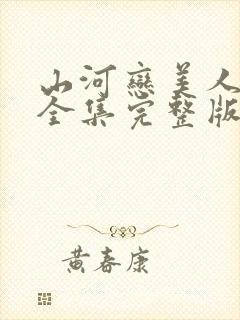 山河戀美人
全集完整版
黄春康